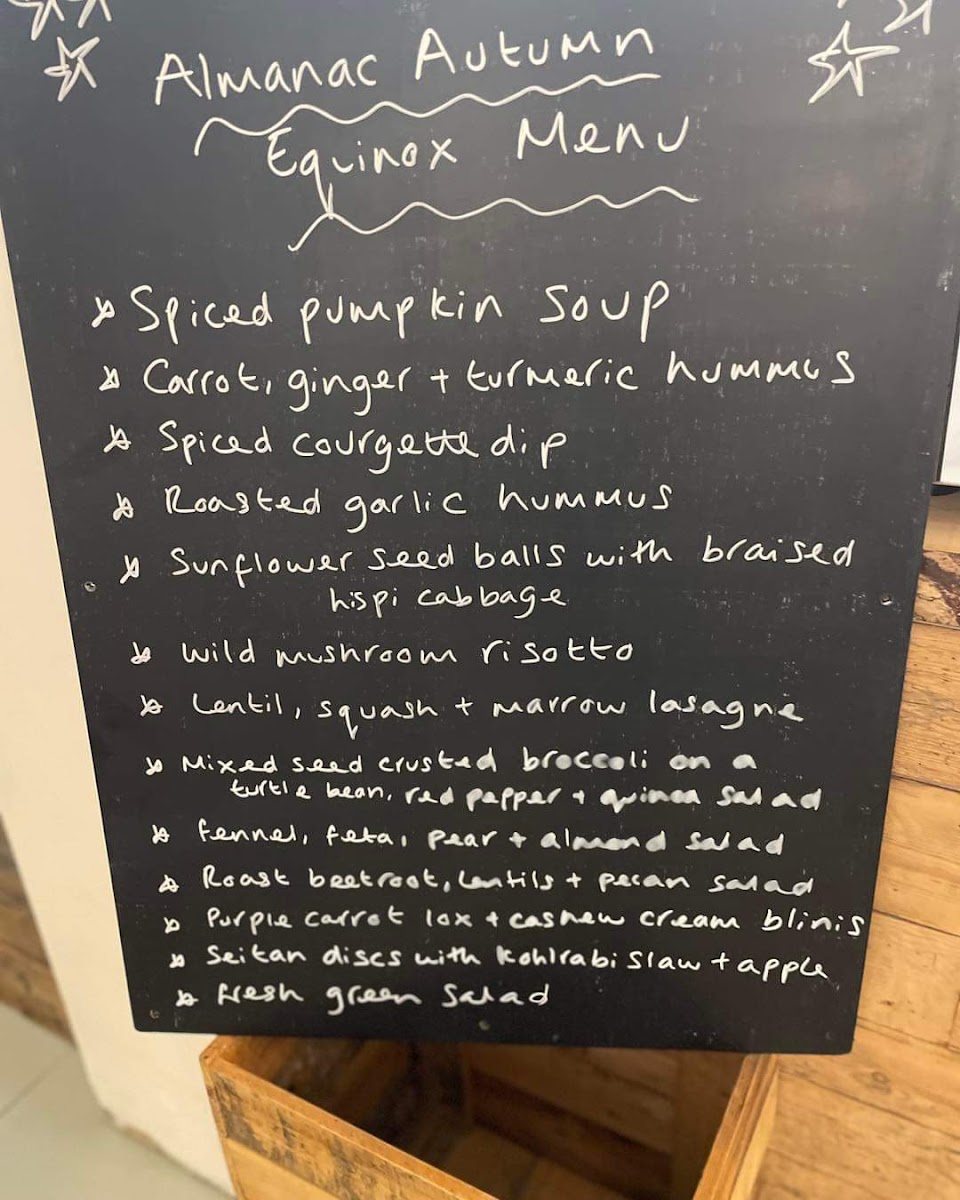 Almanac Autumn
Equinox Menu
Spiced pumpkin soup
Carrot, ginger + turmeric hummus
Spiced courgette dip
Roasted garlic hummus
Sunflower seed balls with braised
hispi cabbage
wild mushroom risotto
Lentil, squash + marrow lasagne
Mixed seed crusted broccoli on a
turtle bean, red pepper + quinoa salad
fennel, feta, pear + almond salad
Roast beetroot, lentils + pecan salad
Purple carrot lox + cashew cream blinis
Seitan discs with kohlrabi slaw + apple
fresh green salad